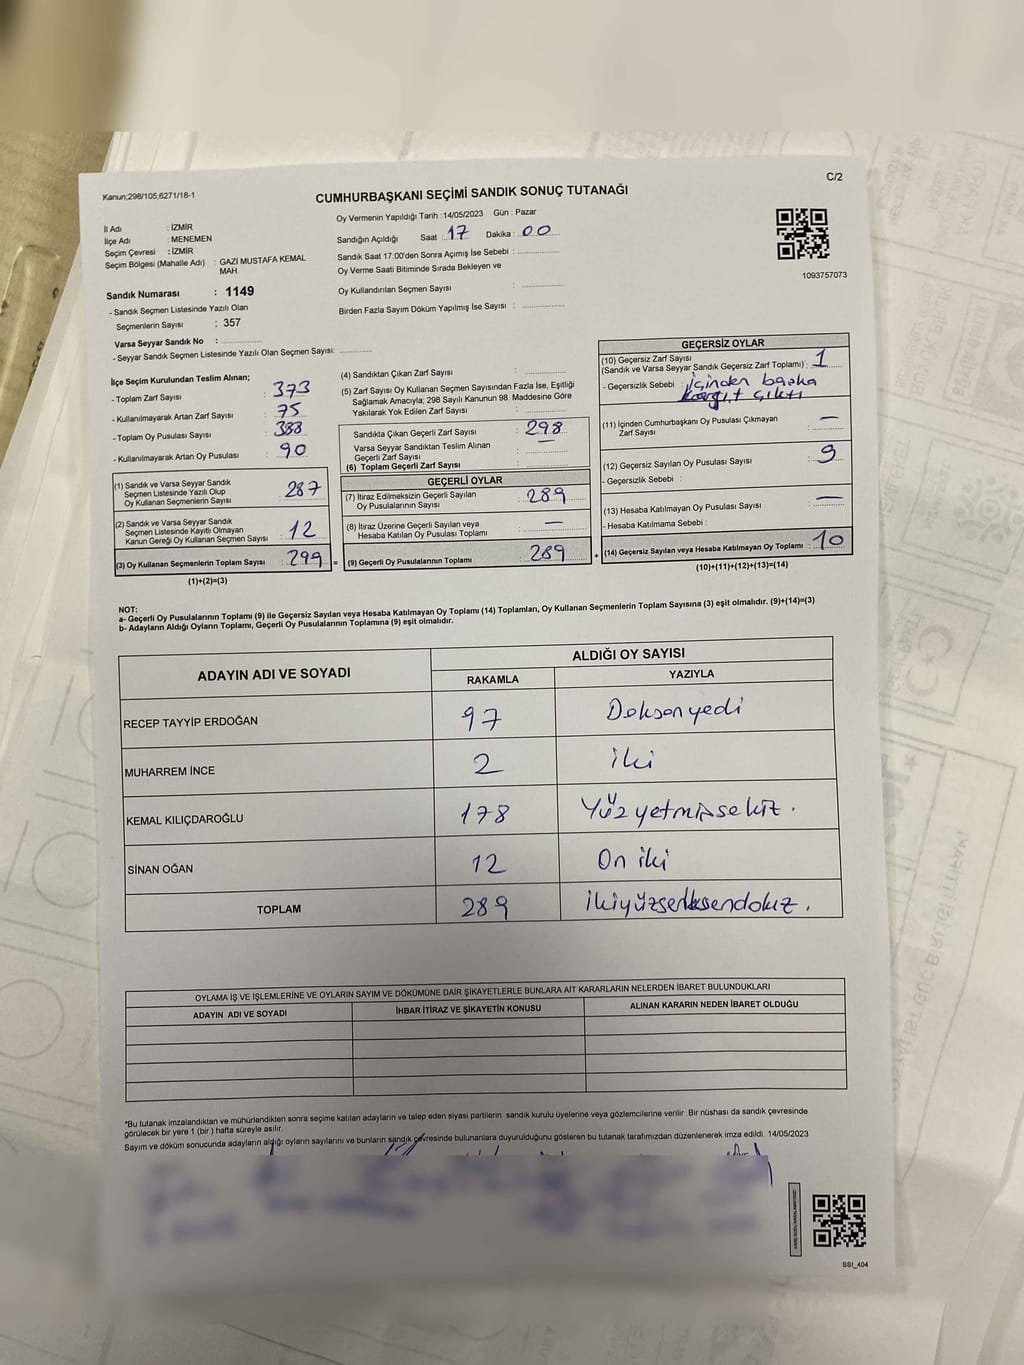 Kanun;298/105,6271/18-1
C/2
CUMHURBAŞKANI SEÇİMİ SANDIK SONUÇ TUTANAĞI
İl Adı : İZMİR
İlçe Adı : MENEMEN
Seçim Çevresi : İZMİR
Seçim Bölgesi (Mahalle Adı) : GAZİ MUSTAFA KEMAL
MAH.
Sandık Numarası : 1149
- Sandık Seçmen Listesinde Yazılı Olan
Seçmenlerin Sayısı : 357
Varsa Seyyar Sandık No :
- Seyyar Sandık Seçmen Listesinde Yazılı Olan Seçmen Sayısı:
Oy Vermenin Yapıldığı Tarih : 14/05/2023 Gün : Pazar
Sandığın Açıldığı Saat : 17 Dakika : 00
Sandık Saat 17:00'den Sonra Açımış İse Sebebi :
Oy Verme Saati Bitiminde Sırada Bekleyen ve
Oy Kullandırılan Seçmen Sayısı :
Birden Fazla Sayım Döküm Yapılmış İse Sayısı :
1093757073
İlçe Seçim Kurulundan Teslim Alınan;
- Toplam Zarf Sayısı : 373
- Kullanılmayarak Artan Zarf Sayısı : 75
- Toplam Oy Pusulası Sayısı : 388
- Kullanılmayarak Artan Oy Pusulası : 90
(1) Sandık ve Varsa Seyyar Sandık
Seçmen Listesinde Yazılı Olup
Oy Kullanan Seçmenlerin Sayısı : 287
(2) Sandık ve Varsa Seyyar Sandık
Seçmen Listesinde Kayıtlı Olmayan
Kanun Gereği Oy Kullanan Seçmen Sayısı : 12
(3) Oy Kullanan Seçmenlerin Toplam Sayısı : 299 =
(1)+(2)=(3)
(4) Sandıktan Çıkan Zarf Sayısı :
(5) Zarf Sayısı Oy Kullanan Seçmen Sayısından Fazla İse, Eşitliği
Sağlamak Amacıyla; 298 Sayılı Kanunun 98. Maddesine Göre
Yakılarak Yok Edilen Zarf Sayısı :
Sandıkta Çıkan Geçerli Zarf Sayısı : 298
Varsa Seyyar Sandıktan Teslim Alınan
Geçerli Zarf Sayısı : —
(6) Toplam Geçerli Zarf Sayısı :
GEÇERLİ OYLAR
(7) İtiraz Edilmeksizin Geçerli Sayılan
Oy Pusulasının Sayısı : 289
(8) İtiraz Üzerine Geçerli Sayılan veya
Hesaba Katılan Oy Pusulası Toplamı : —
(9) Geçerli Oy Pusulalarının Toplamı : 289 +
GEÇERSİZ OYLAR
(10) Geçersiz Zarf Sayısı
(Sandık ve Varsa Seyyar Sandık Geçersiz Zarf Toplamı) : 1
- Geçersizlik Sebebi : İçinden başka
kağıt çıktı
(11) İçinden Cumhurbaşkanı Oy Pusulası Çıkmayan
Zarf Sayısı : —
(12) Geçersiz Sayılan Oy Pusulası Sayısı : 9
- Geçersizlik Sebebi :
(13) Hesaba Katılmayan Oy Pusulası Sayısı : —
- Hesaba Katılmama Sebebi :
(14) Geçersiz Sayılan veya Hesaba Katılmayan Oy Toplamı : 10
(10)+(11)+(12)+(13)=(14)
NOT:
a- Geçerli Oy Pusulalarının Toplamı (9) ile Geçersiz Sayılan veya Hesaba Katılmayan Oy Toplamı (14) Toplamları, Oy Kullanan Seçmenlerin Toplam Sayısına (3) eşit olmalıdır. (9)+(14)=(3)
b- Adayların Aldığı Oyların Toplamı, Geçerli Oy Pusulalarının Toplamına (9) eşit olmalıdır.
ADAYIN ADI VE SOYADI
ALDIĞI OY SAYISI
RAKAMLA YAZIYLA
RECEP TAYYİP ERDOĞAN 97 Doksanyedi
MUHARREM İNCE 2 iki
KEMAL KILIÇDAROĞLU 178 Yüzyetmişsekiz.
SİNAN OĞAN 12 On iki
TOPLAM 289 ikiyüzseksendokuz.
OYLAMA İŞ VE İŞLEMLERİNE VE OYLARIN SAYIM VE DÖKÜMÜNE DAİR ŞİKAYETLERLE BUNLARA AİT KARARLARIN NELERDEN İBARET BULUNDUKLARI
ADAYIN ADI VE SOYADI İHBAR İTİRAZ VE ŞİKAYETİN KONUSU ALINAN KARARIN NEDEN İBARET OLDUĞU
*Bu tutanak imzalandıktan ve mühürlendikten sonra seçime katılan adayların ve talep eden siyasi partilerin sandık kurulu üyelerine veya gözlemcilerine verilir. Bir nüshası da sandık çevresinde
görülecek bir yere 1 (bir ) hafta süreyle asılır.
Sayım ve döküm sonucunda adayların aldığı oyların sayılarını ve bunların sandık çevresinde bulunanlara duyurulduğunu gösteren bu tutanak tarafımızdan düzenlenerek imza edildi. 14/05/2023
SSI_404